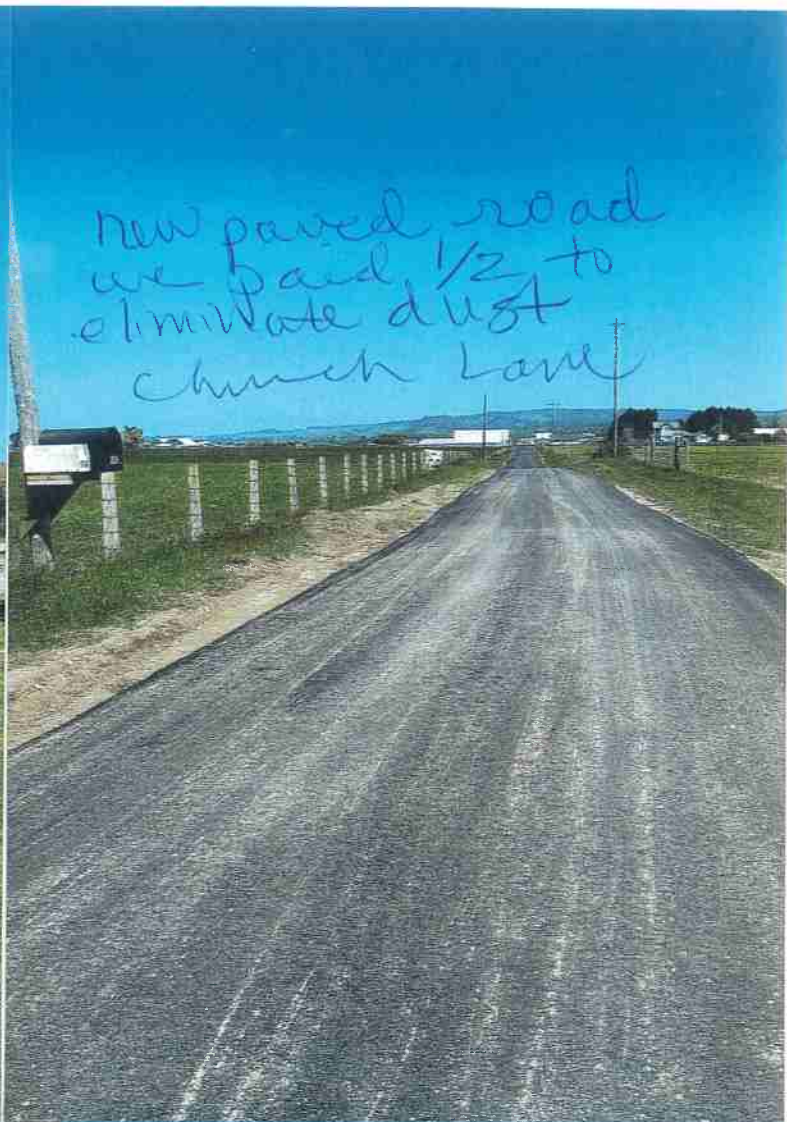 new paved road
we paid 1/2 to
eliminate dust
Church Lane